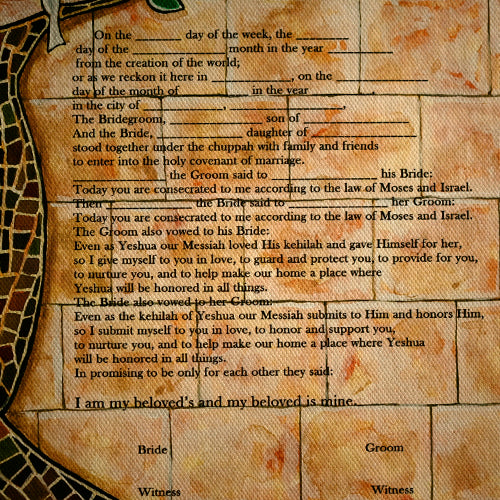 On the _______ day of the week, the ________
day of the _______________ month in the year __________
from the creation of the world;
or as we reckon it here in ____________, on the ______________
day of the month of __________ in the year __________,
in the city of ____________, _________________,
The Bridegroom, ______________ son of ________________
And the Bride, _____________ daughter of ________________
stood together under the chuppah with family and friends
to enter into the holy covenant of marriage.
______________ the Groom said to ________________ his Bride:
Today you are consecrated to me according to the law of Moses and Israel.
Then ______________ the Bride said to _______________ her Groom:
Today you are consecrated to me according to the law of Moses and Israel.
The Groom also vowed to his Bride:
Even as Yeshua our Messiah loved His kehilah and gave Himself for her,
so I give myself to you in love, to guard and protect you, to provide for you,
to nurture you, and to help make our home a place where
Yeshua will be honored in all things.
The Bride also vowed to her Groom:
Even as the kehilah of Yeshua our Messiah submits to Him and honors Him,
so I submit myself to you in love, to honor and support you,
to nurture you, and to help make our home a place where Yeshua
will be honored in all things.
In promising to be only for each other they said:
I am my beloved's and my beloved is mine.
Bride Groom
Witness Witness